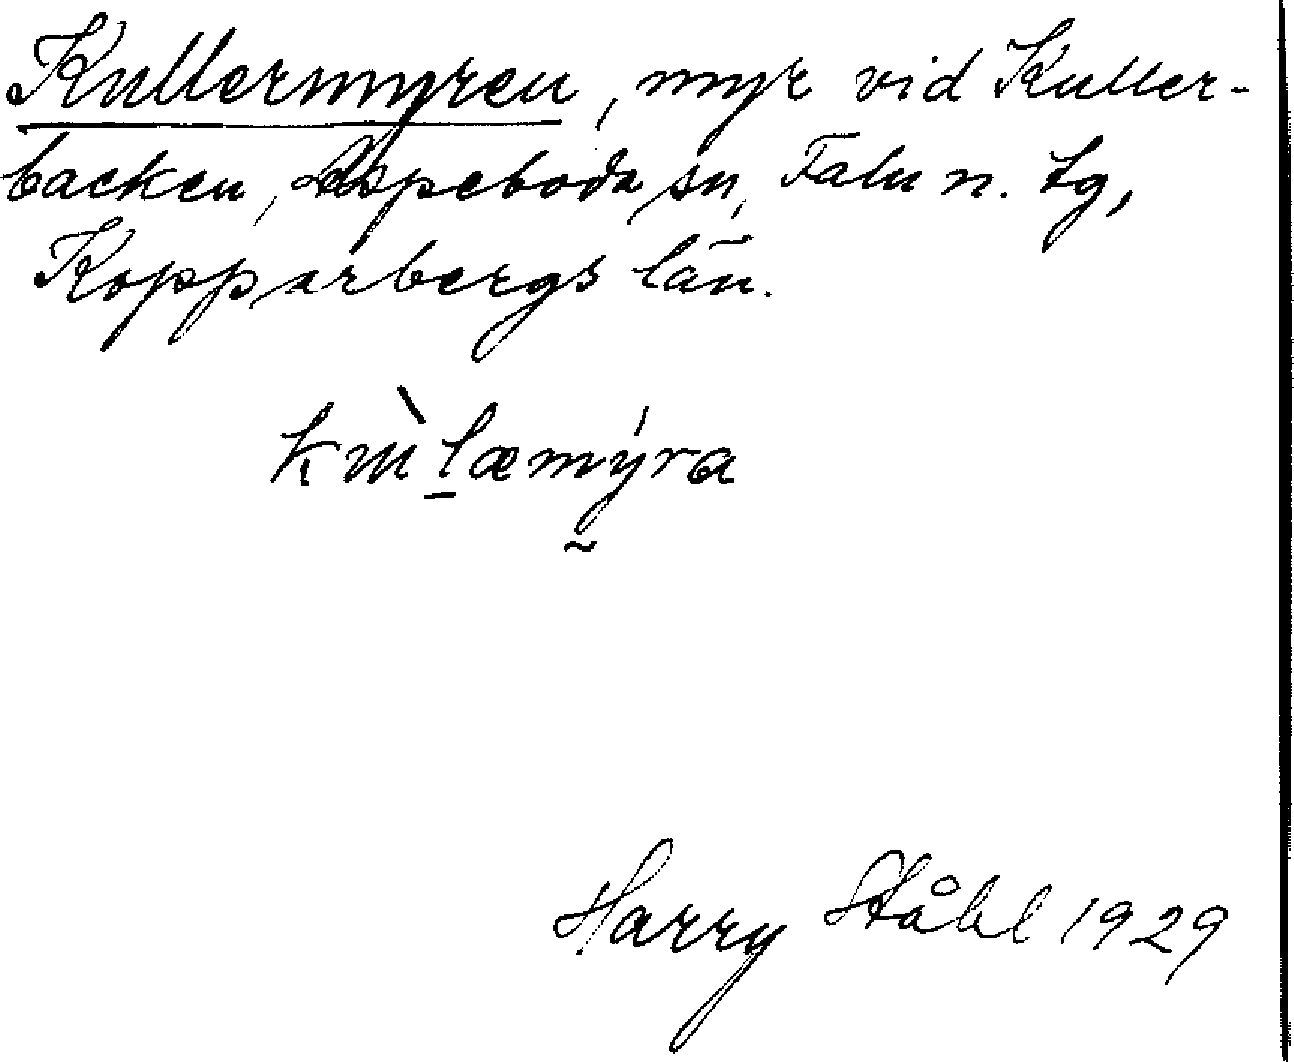 Kullermyren, myr vid Kuller-
backen, Aspeboda sn, Falu n. tg,
Kopparbergs län.
Harry Ståhl 1929